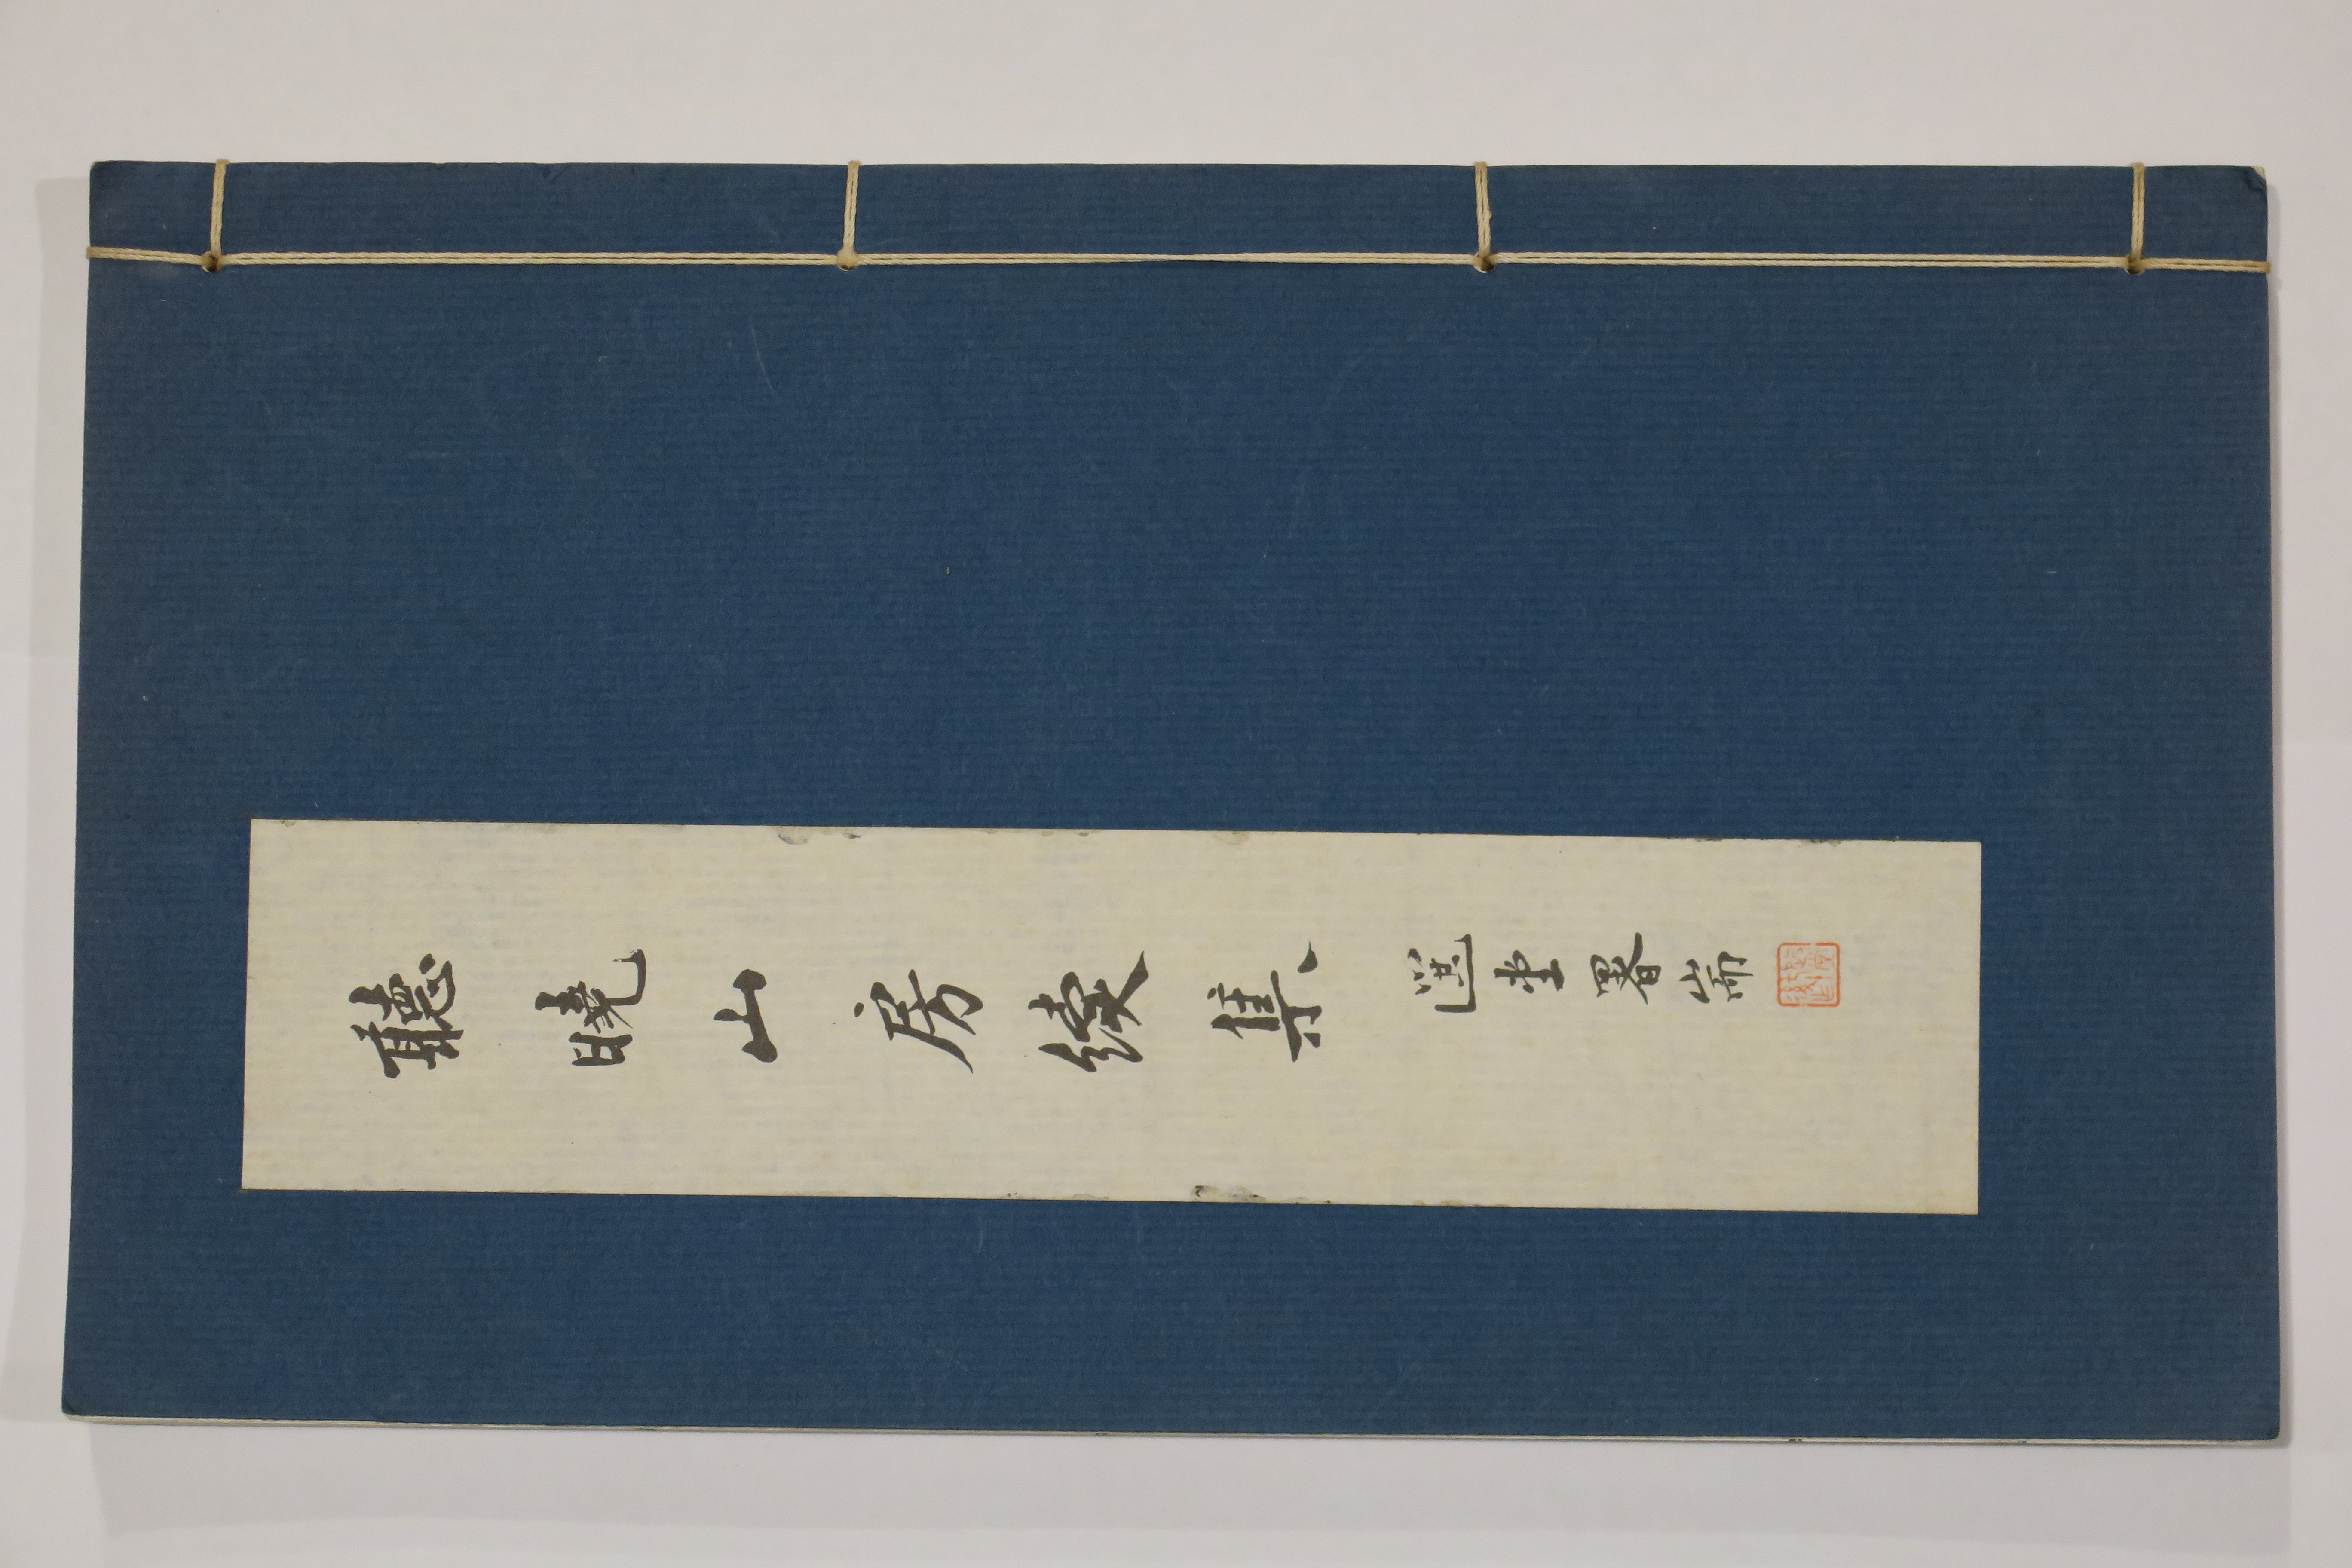 聽曉山房續集
選堂署耑